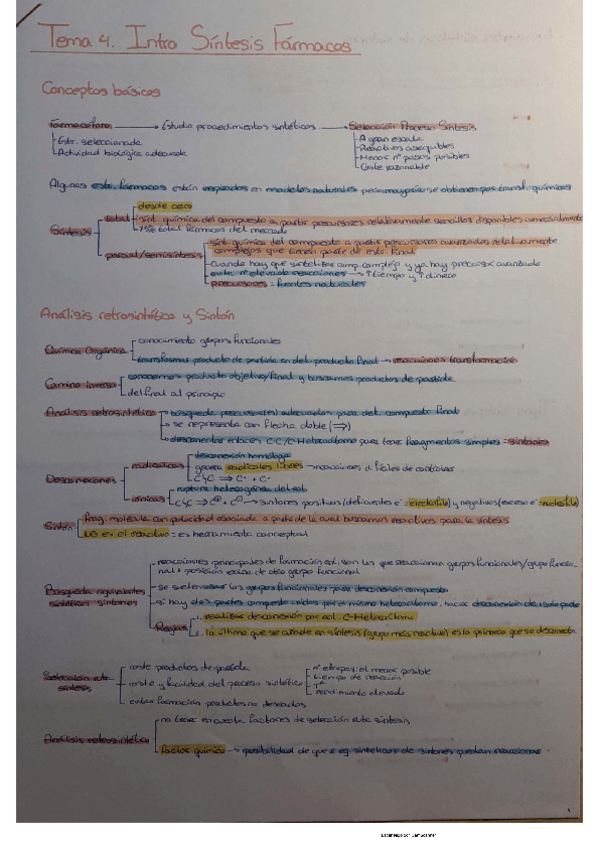 Tema 4. Intro Síntesis Fármacos
Conceptos básicos
Farmacóforo → Estudio procedimientos sintéticos → Selección Proceso Síntesis
Estr. seleccionada
Actividad biológica adecuada
A gran escala
Reactivos asequibles
Menor nº pasos posibles
Coste razonable
Algunas estr. fármacos están inspirados en modelos naturales pero mayoría se obtienen por transf. químicas
Síntesis
total
desde cero
sínt. química del compuesto a partir precursores relativamente sencillos disponibles comercialmente
75% total fármacos del mercado
parcial/semisíntesis
sínt. química del compuesto a partir precursores avanzados relativamente
complejos que tienen parte de estr. final
Cuando hay que sintetizar comp. complejo y ya hay precursor avanzado
evita nº elevado reacciones → ↑tiempo y ↑dinero
precursores = fuentes naturales
Análisis retrosintético y Sintón
Química Orgánica
conocimiento grupos funcionales
transformar producto de partida en det. producto final → reacciones transformación
Camino inverso
conocemos producto objetivo/final y buscamos productos de partida
del final al principio
Análisis retrosintético
búsqueda precursor(es) adecuados para det. compuesto final
se representa con flecha doble (⇒)
desconectar enlaces C-C/C-Heteroátomo para tener fragmentos simples = sintones
Desconexiones
radicálicas
desconexión homóloga
genera radicales libres → reacciones difíciles de controlar
C-C ⇒ C· + C·
iónicas
ruptura heterogénea del enl.
C-C ⇒ C⊕ + C⊖ → sintones positivos (deficientes e⁻ = electrófilo) y negativos (exceso e⁻ = nucleófilo)
Sintón
frag. molécula con polaridad asociada a partir de la cual buscamos reactivos para la síntesis
NO es el reactivo = es herramienta conceptual
Búsqueda equivalentes
sintéticos sintones
reacciones principales de formación enl. son las que reaccionan grupos funcionales/grupo funcio-
nal + posición vecina de otro grupo funcional
se suelen usar los grupos funcionales para desconexión compuesto
si hay dos partes compuesto unidas por el mismo heteroátomo, hacer desconexión de cada parte
Reglas
1. realizar desconexión por enl. C-Heteroátomo
2. lo último que se añade en síntesis (grupo más reactivo) es lo primero que se desconecta
Selección ruta
síntesis
coste productos de partida
coste y facilidad del proceso sintético
nº etapas: el menor posible
tiempo de reacción
Tª
rendimiento elevado
evitar formación productos no deseados
Análisis retrosintético
no tener en cuenta factores de selección ruta síntesis
factor químico → posibilidad de que eq sintéticos de sintones puedan reaccionar